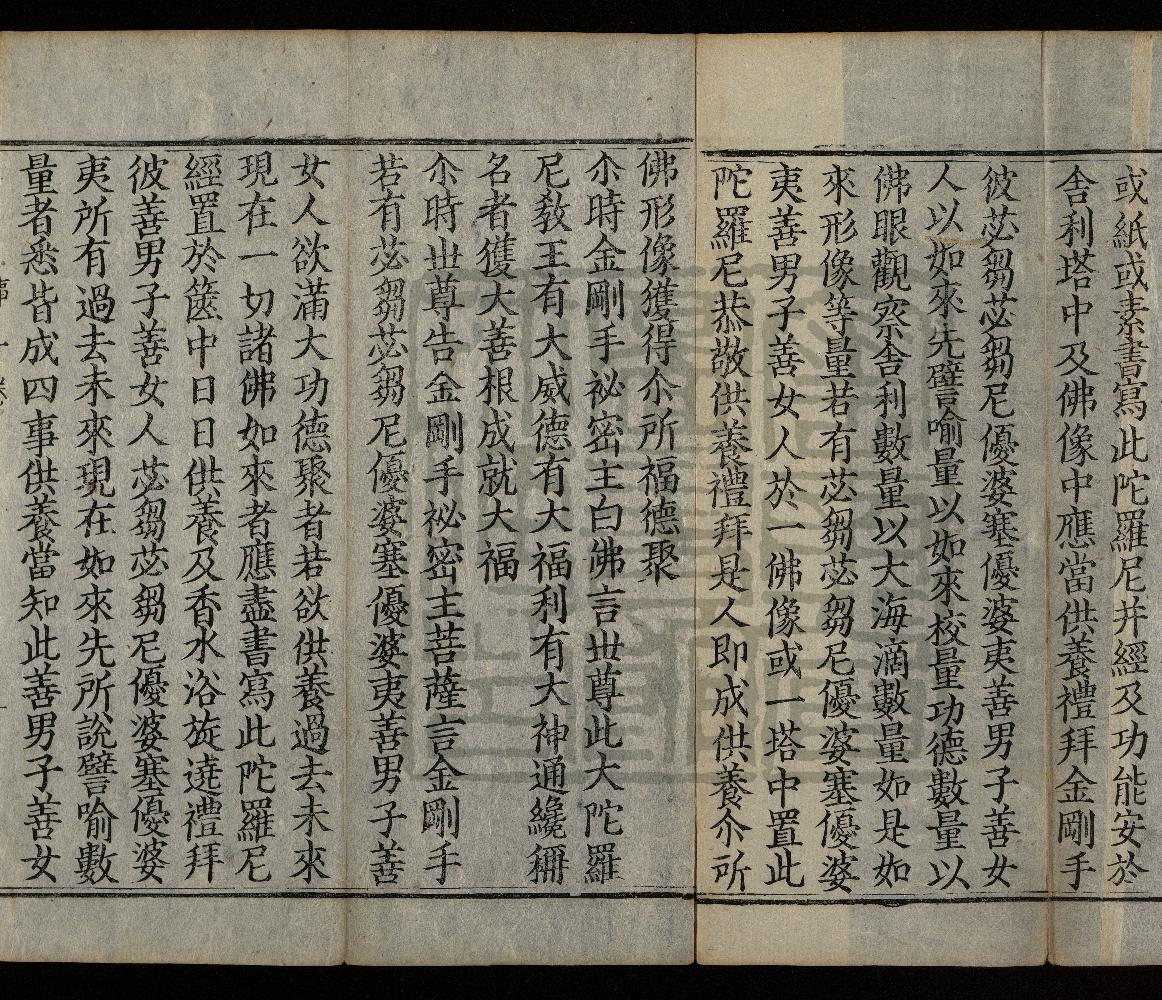 或紙或素書寫此陀羅尼并經及功能安於
舎利塔中及佛像中應當供養禮拜金剛手
彼苾芻苾芻尼優婆塞優婆夷善男子善女
人以如來先譬喻量以如來校量功德數量以
佛眼觀察舎利數量以大海滴數量如是如
來形像等量若有苾芻苾芻尼優婆塞優婆
夷善男子善女人於一佛像或一塔中置此
陀羅尼恭敬供養禮拜是人即成供養尒所
佛形像獲得尒所福德聚
尒時金剛手祕密主白佛言世尊此大陀羅
尼敎王有大威德有大福利有大神通纔稱
名者獲大善根成就大福
尒時世尊告金剛手祕密主菩薩言金剛手
若有苾芻苾芻尼優婆塞優婆夷善男子善
女人欲滿大功德聚者若欲供養過去未來
現在一切諸佛如來者應盡書寫此陀羅尼
經置於篋中日日供養及香水浴旋遶禮拜
彼善男子善女人苾芻苾芻尼優婆塞優婆
夷所有過去未來現在如來先所說譬喻數
量者悉皆成四事供養當知此善男子善女